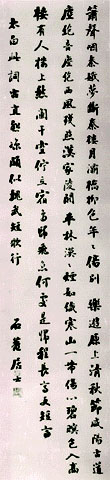 簫聲咽秦娥夢斷秦樓月灞陵柳色年〻傷別樂遊原上清秋節咸陽古道
塵絕音塵絕西風殘照漢家陵闕平林漠〻煙如織寒山一帶傷心碧暝色入高
樓有人樓上愁闌干空佇立宿鳥歸飛急何處是歸程長亭更短亭
太白此詞古直悲涼頗似魏武短歌行
石菴居士